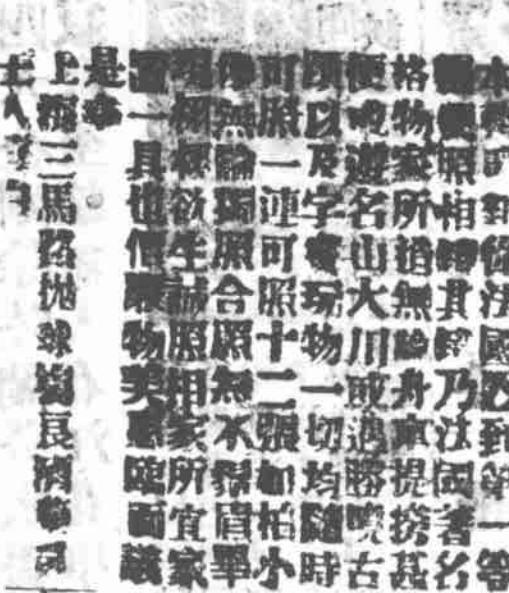 本從法國到第一等
照相鏡其鏡乃法國著名
格物家所造無論舟車提携甚
便或遊名山大川或遇勝境古
蹟以及字畫玩物一切均隨時
可照一連可照十二張如拍小
像無論獨照合照無不鬚眉畢
現栩栩欲生誠照相家所宜家
置一具也價廉物美惠臨面議
是幸
上海三馬路拋球塲良濟藥房
主人